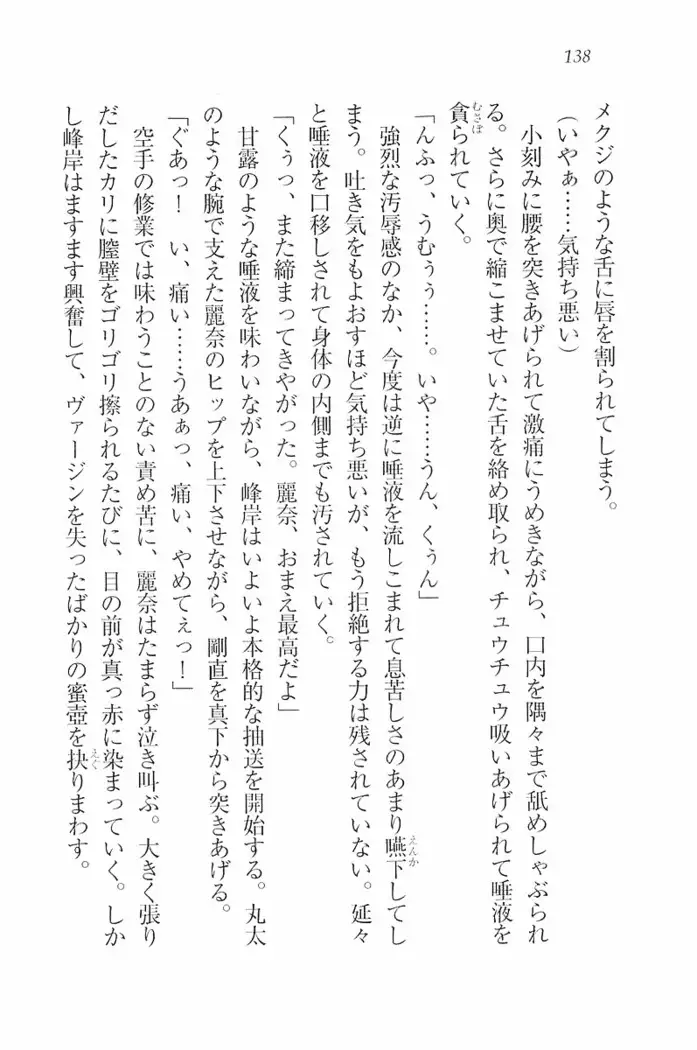 138
メクジのような舌に唇を割られてしまう。
(いやぁ……気持ち悪い)
小刻みに腰を突きあげられて激痛にうめきながら、口内を隅々まで舐めしゃぶられ
る。さらに奥で縮こませていた舌を絡め取られ、チュウチュウ吸いあげられて唾液を
貪られていく。
「んふっ、うむぅぅ……。いや……うん、くぅん」
強烈な汚辱感のなか、今度は逆に唾液を流しこまれて息苦しさのあまり嚥下してし
まう。吐き気をもよおすほど気持ち悪いが、もう拒絶する力は残されていない。延々
と唾液を口移しされて身体の内側までも汚されていく。
「くぅっ、また締まってきやがった。麗奈、おまえ最高だよ」
甘露のような唾液を味わいながら、峰岸はいよいよ本格的な抽送を開始する。丸太
のような腕で支えた麗奈のヒップを上下させながら、剛直を真下から突きあげる。
「ぐあっ！　い、痛い……うあぁっ、痛い、やめてぇっ！」
空手の修業では味わうことのない責め苦に、麗奈はたまらず泣き叫ぶ。大きく張り
だしたカリに膣壁をゴリゴリ擦られるたびに、目の前が真っ赤に染まっていく。しか
し峰岸はますます興奮して、ヴァージンを失ったばかりの蜜壺を抉りまわす。